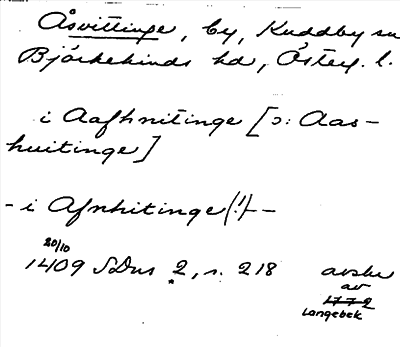 Åsvittinge, by, Kuddby sn
Björkekinds hd, Östery. l.
i Aafhnitinge [ɔ: Aas-
huitinge]
- i Afnhitinge (!) -
20/10
1409 SDns 2, s. 218
avskr
av
1772
Langebek